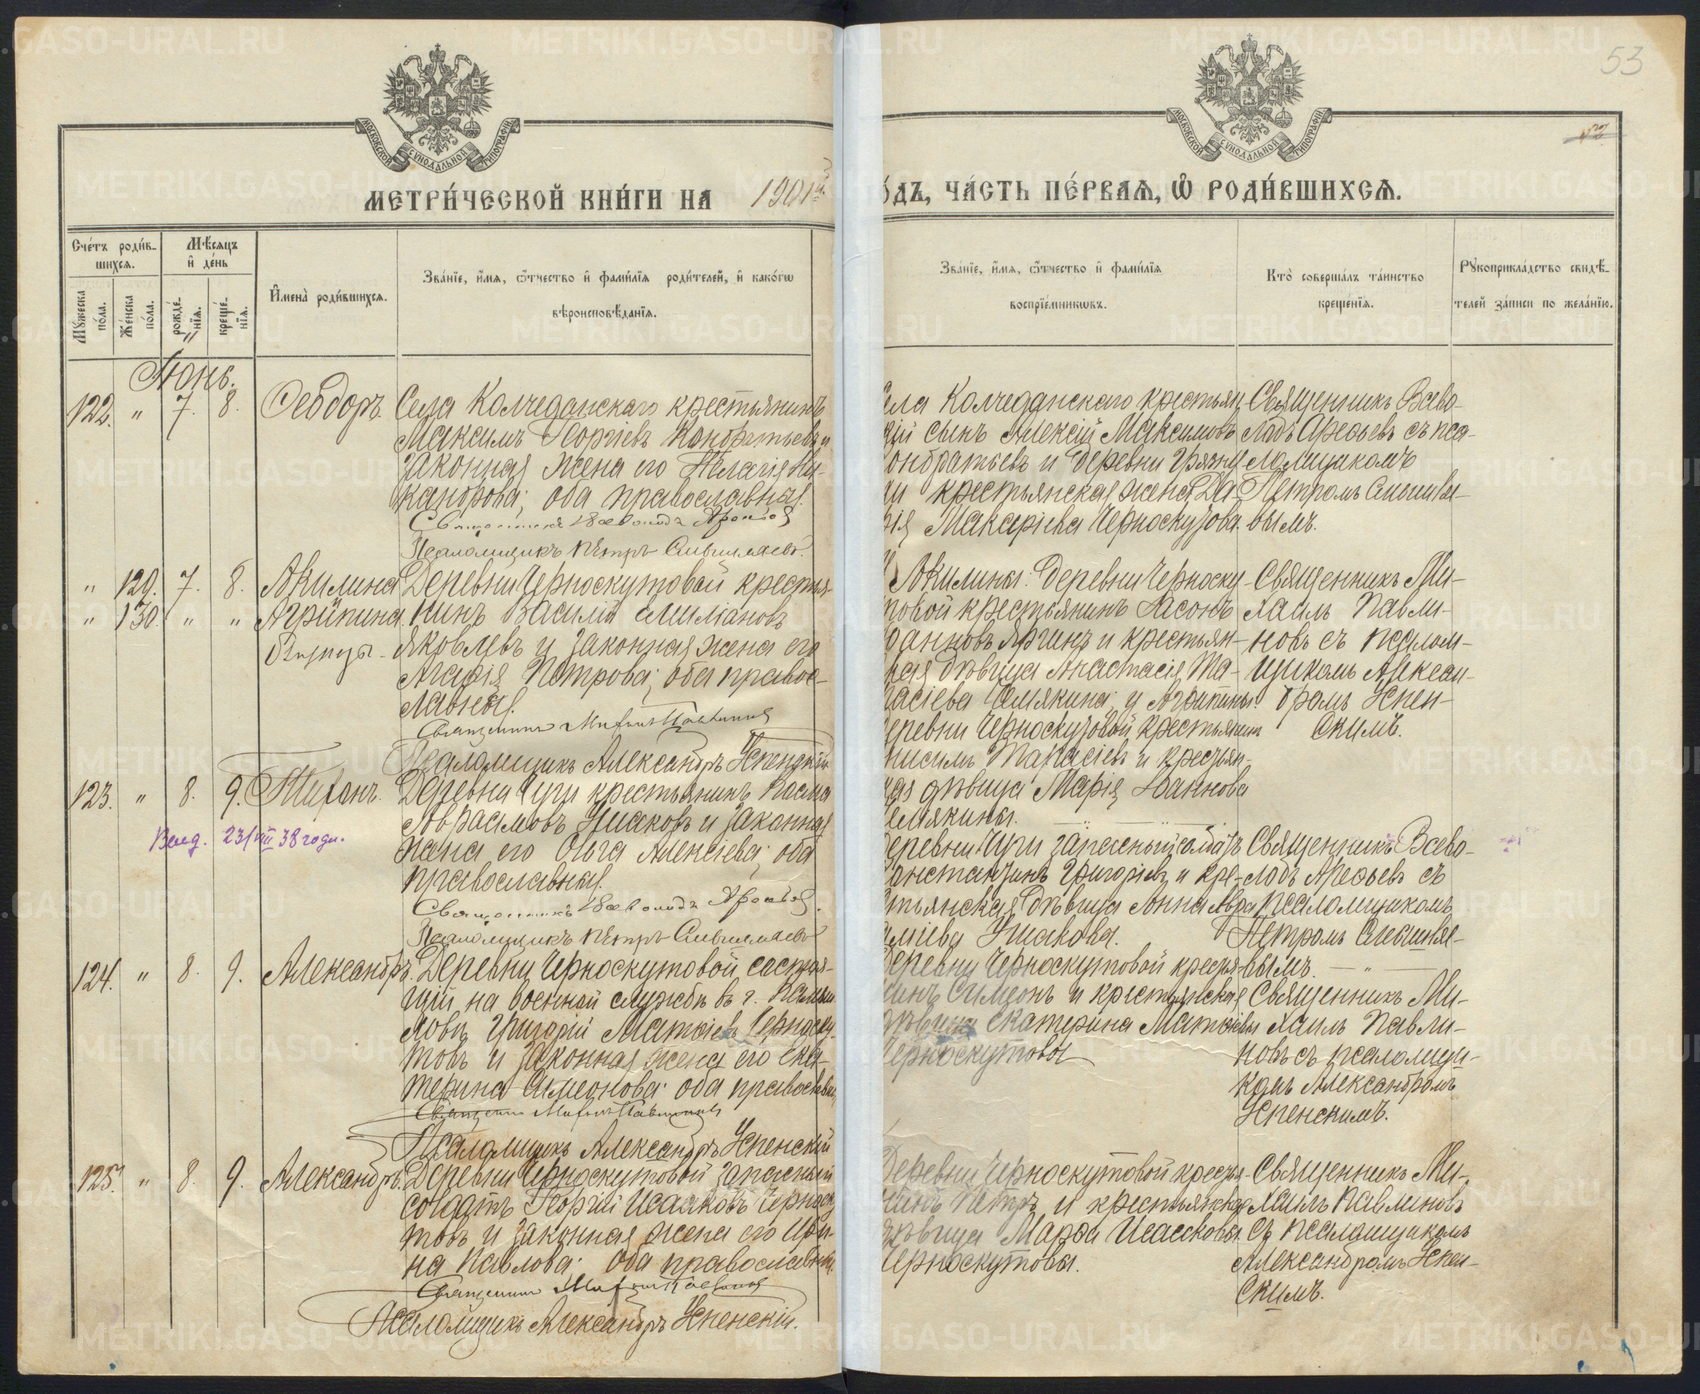 53
МЕТРИ́ЧЕСКОЙ КНИ́ГИ НА 1901й
ДЪ, ЧА́СТЬ ПЕ́РВАѦ, Ѽ РОДИ́ВШИХСѦ.
Сче́тъ роди́в-
шихсѧ.
Мѣ́сѧцъ
и҆ де́нь
Мꙋ́жеска
по́ла.
Же́нска
по́ла.
рожде́-
нїѧ.
креще́-
нїѧ.
И҆мена̀ роди́вшихсѧ.
Зва́нїе, и҆́мѧ, ѻ҆́тчество и҆ фами́лїѧ роди́телей, и҆ како́гѡ
вѣроисповѣ́данїѧ.
Зва́нїе, и҆́мѧ, ѻ҆́тчество и҆ фами́лїѧ
воспрїе́мниковъ.
Кто̀ соверша́лъ та́инство
креще́нїѧ.
Рꙋкоприкла́дство свидѣ́-
телей за́писи по жела́нїю.
Іюнь.
122. " 7. 8. Ѳеодоръ. Села Колчеданскаго крестьянинъ
Максимъ Георгіевъ Кондратьевъ и
законная жена его Пелагія Ни-
кандрова; оба православные.
Священникъ Всеволодъ Арефьев
Псаломщикъ Петръ
ела Колчеданскаго крестьян-
кій сынъ Алексій Максимовъ
ондратьевъ и деревни Грязну
хи крестьянская жена Да-
рія Макаріева Черноскутова.
Священникъ Всево-
лодъ Арефьевъ съ пса-
ломщикомъ
Петромъ
вымъ.
" 129. 7. 8. Акилина
" 130. " " Агрипина
Близнецы.
Деревни Черноскутовой крестья-
нинъ Василій Емиліановъ
Яковлевъ и законная жена его
Агафія Петрова; оба правос-
лавные.
Священникъ Михаилъ Павлиновъ
Псаломщикъ Александръ Успенскій
Акилины: деревни Черноску-
товой крестьянинъ Іасонъ
и крестьян-
ская дѣвица Анастасія Та-
расіева Семякина; и Агрипины
деревни Черноскутовой крестьянинъ
Тарасіевъ и крестьян-
ская дѣвица Марія Іоаннова
Семякины.
Священникъ Ми-
хаилъ Павли-
новъ съ псалом-
щикомъ Алексан-
дромъ Успен-
скимъ.
123. " 8. 9. Тихонъ. Деревни Чуги крестьянинъ
Аврамовъ Ушаковъ и законная
жена его Ольга Алексіева; оба
православные.
23/VIII 38 года.
Священникъ Всеволодъ Арефьев.
Псаломщикъ Петръ
деревни Чуги запасный солдатъ
онстантинъ Григоріевъ и кре-
стьянская дѣвица Анна Авра
Ушакова.
Священникъ Всево-
лодъ Арефьевъ съ
псаломщикомъ
Петромъ
вымъ. — " —
124. " 8. 9. Александръ. Деревни Черноскутовой, состоя-
щій на военной службѣ въ г. Камыш
ловѣ Григорій Матѳіевъ Черноску-
товъ и законная жена его Ека-
терина Симеонова; оба православные
Священникъ Михаилъ Павлиновъ
Псаломщикъ Александръ Успенскій
Деревни Черноскутовой крестья-
нинъ Симеонъ и крестьянская
дѣвица Екатерина Матѳіевы
Черноскутовы
Священникъ Ми-
хаилъ Павли-
новъ съ псаломщи-
комъ Александромъ
Успенскимъ.
125. " 8. 9. Александръ. Деревни Черноскутовой запасный
солдатъ Георгій Исааковъ Черноску
товъ и законная жена его Ири-
на Павлова; оба православные.
Священникъ Михаилъ Павлиновъ
Псаломщикъ Александръ Успенскій.
Деревни Черноскутовой крестья-
нинъ Петръ и крестьянская
дѣвица Марѳа Исааковы
Черноскутовы.
Священникъ Ми-
хаилъ Павлиновъ
съ псаломщикомъ
Александромъ Успен-
скимъ.